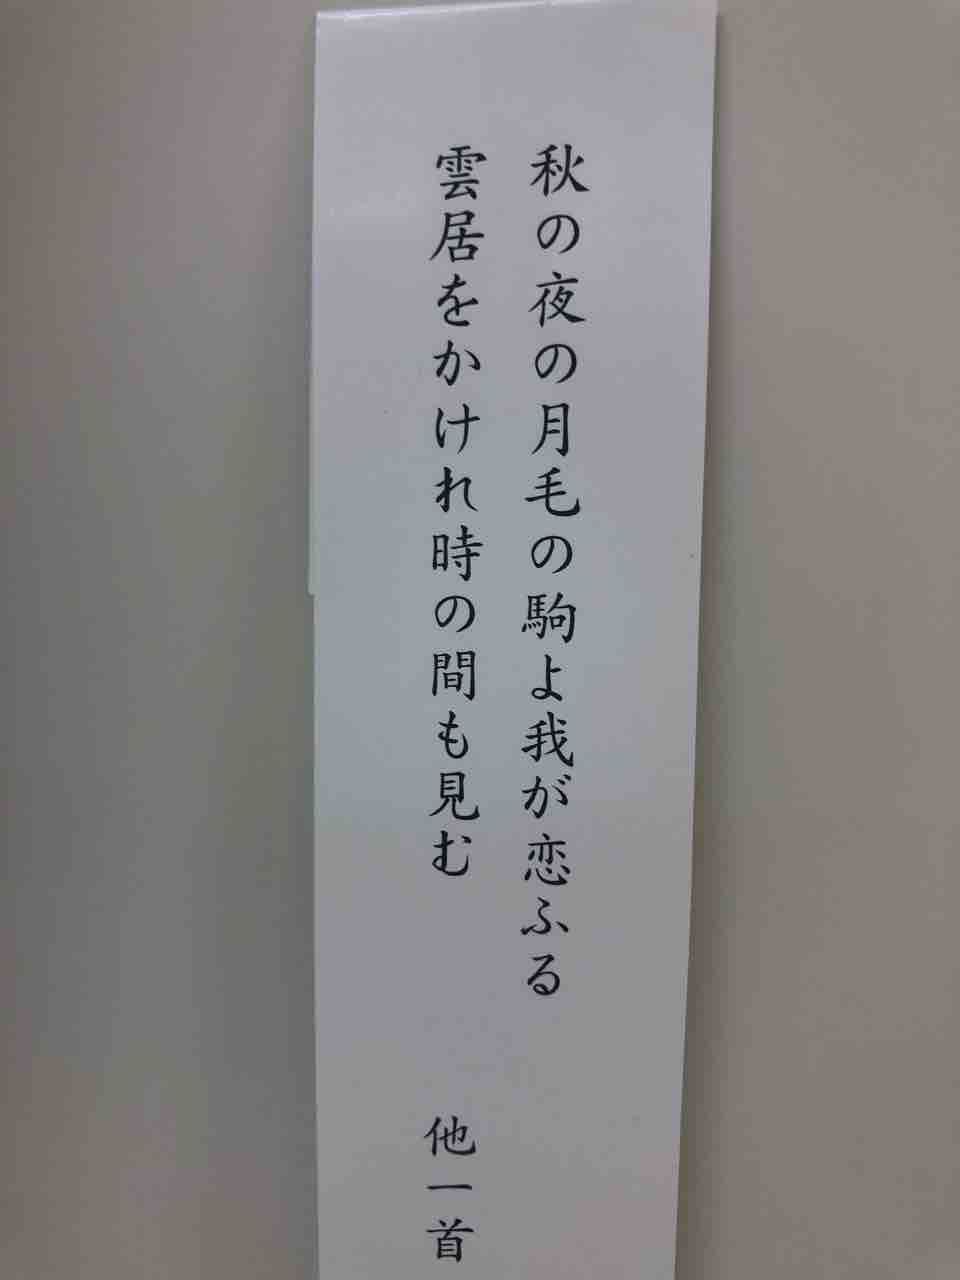 秋の夜の月毛の駒よ我が恋ふる
雲居をかけれ時の間も見む
他一首